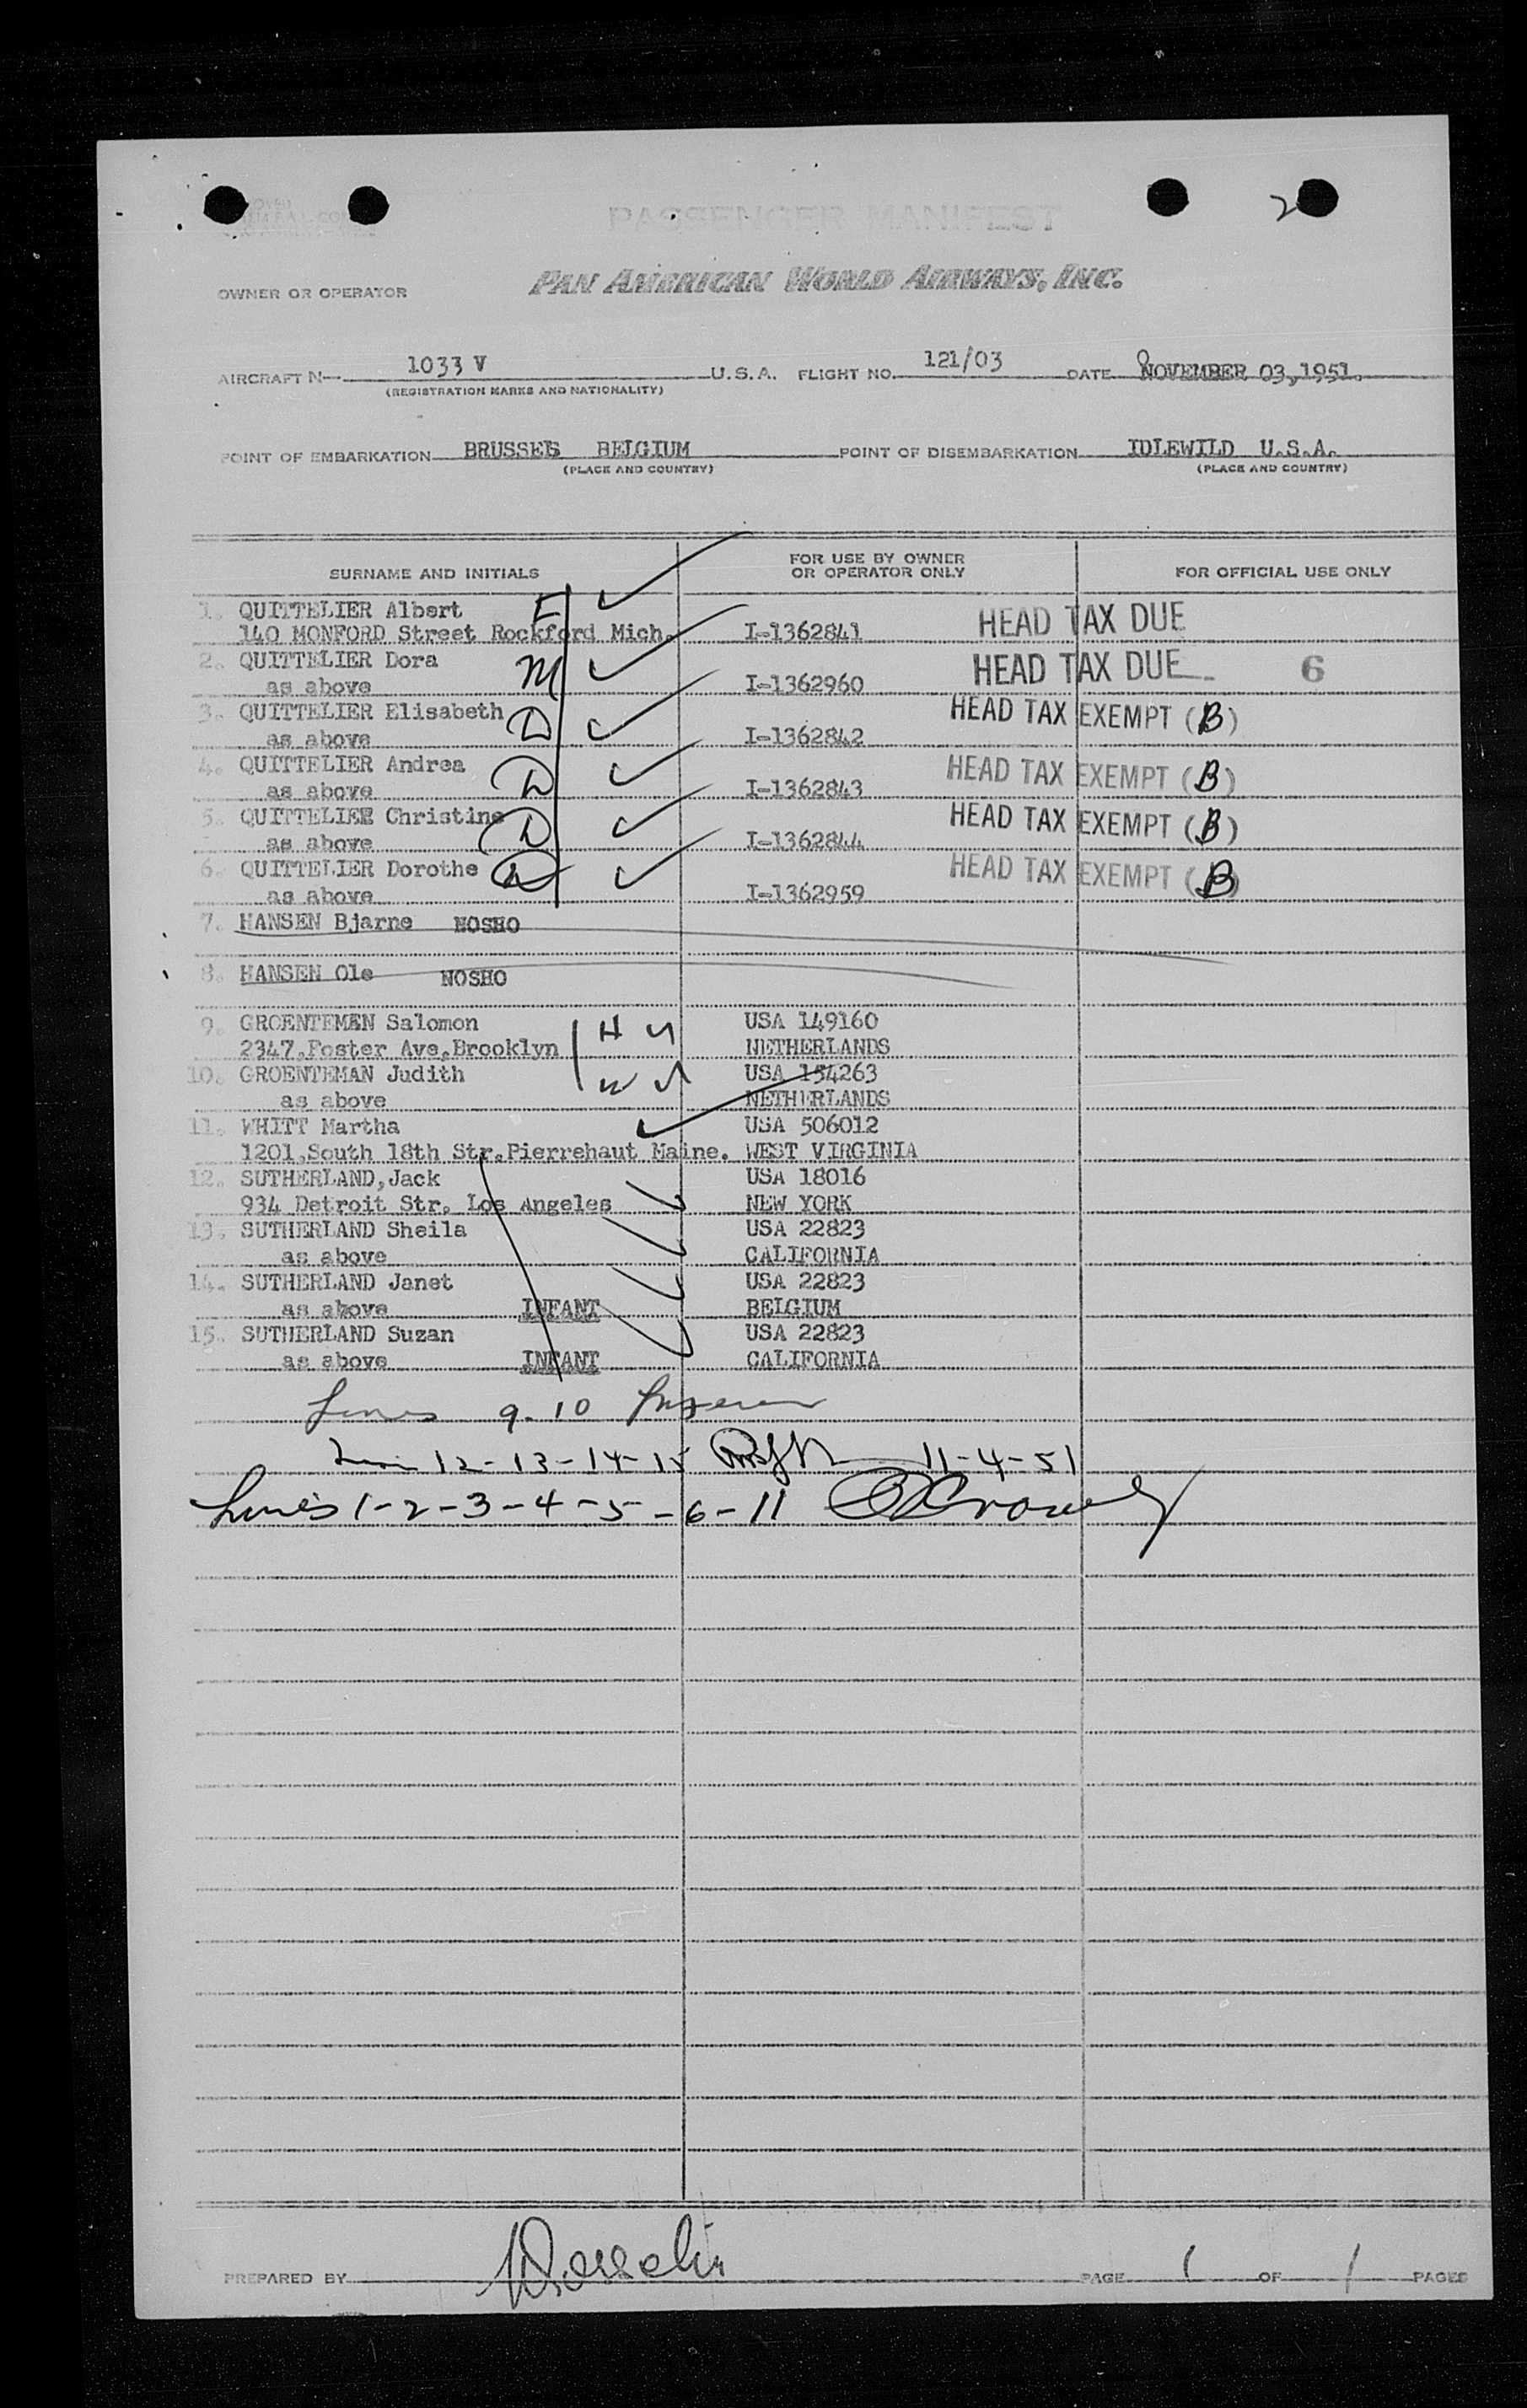 2
PASSENGER MANIFEST
OWNER OR OPERATOR PAN AMERICAN WORLD AIRWAYS, INC.
AIRCRAFT N— 1033 V U.S.A. FLIGHT NO. 121/03 DATE NOVEMBER 03,1951.
(REGISTRATION MARKS AND NATIONALITY)
POINT OF EMBARKATION BRUSSELS BELGIUM POINT OF DISEMBARKATION IDLEWILD U.S.A.
(PLACE AND COUNTRY) (PLACE AND COUNTRY)
SURNAME AND INITIALS FOR USE BY OWNER OR OPERATOR ONLY FOR OFFICIAL USE ONLY
1. QUITTELIER Albert F
140 MONFORD Street Rockford Mich. I-1362841 HEAD TAX DUE
2. QUITTELIER Dora M HEAD TAX DUE 6
as above I-1362960
3. QUITTELIER Elisabeth D HEAD TAX EXEMPT (B)
as above I-1362842
4. QUITTELIER Andrea D HEAD TAX EXEMPT (B)
as above I-1362843
5. QUITTELIER Christine D HEAD TAX EXEMPT (B)
as above I-1362844
6. QUITTELIER Dorothe D HEAD TAX EXEMPT (B)
as above I-1362959
7. HANSEN Bjarne NOSHO
8. HANSEN Ole NOSHO
9. GROENTEMAN Salomon H USA 149160
2347,Foster Ave,Brooklyn NETHERLANDS
10. GROENTEMAN Judith W USA 154263
as above NETHERLANDS
11. WHITT Martha USA 506012
1201,South 18th Str.Pierrehaut Maine. WEST VIRGINIA
12. SUTHERLAND,Jack USA 18016
934 Detroit Str. Los Angeles NEW YORK
13. SUTHERLAND Sheila USA 22823
as above CALIFORNIA
14. SUTHERLAND Janet USA 22823
as above INFANT BELGIUM
15. SUTHERLAND Suzan USA 22823
as above INFANT CALIFORNIA
Lines 9-10
12-13-14-15 11-4-51
Lines 1-2-3-4-5-6-11
PREPARED BY PAGE 1 OF 1 PAGES